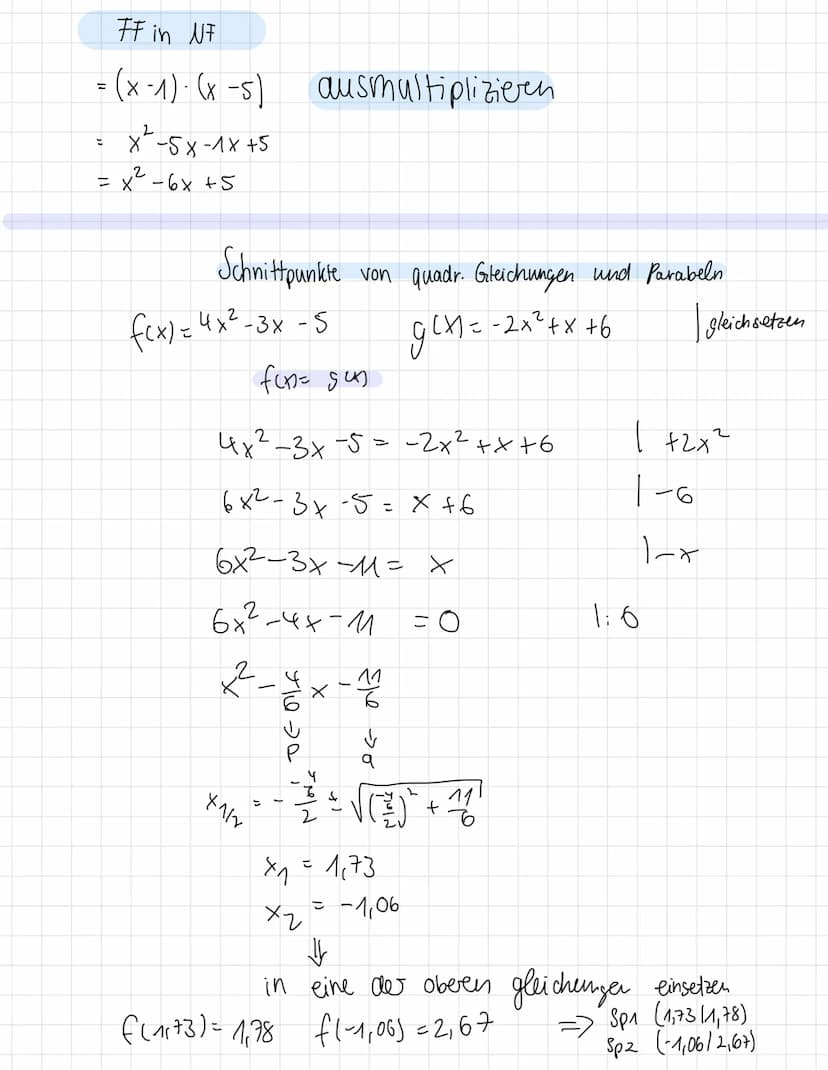 FF in NF
= (x-1)·(x-5) ausmultiplizieren
= x²-5x-1x+5
= x²-6x+5
Schnittpunkte von quadr. Gleichungen und Parabeln
f(x)=4x²-3x-5 g(x)=-2x²+x+6 | gleichsetzen
f(x)= g(x)
4x²-3x-5 = -2x²+x+6 | +2x²
6x²-3x-5 = x+6 | -6
6x²-3x-11 = x |-x
6x²-4x-11 = 0 |:6
x² - 4/6 x - 11/6
↓ ↓
p q
x1/2 = - (-4/6)/2 ± √(((-4/6)/2)² + 11/6)
x₁ = 1,73
x₂ = -1,06
⇓
in eine der oberen gleichungen einsetzen
f(1,73)=1,78 f(-1,06)=2,67 ⇒ Sp1 (1,73|1,78)
Sp2 (-1,06/2,67)